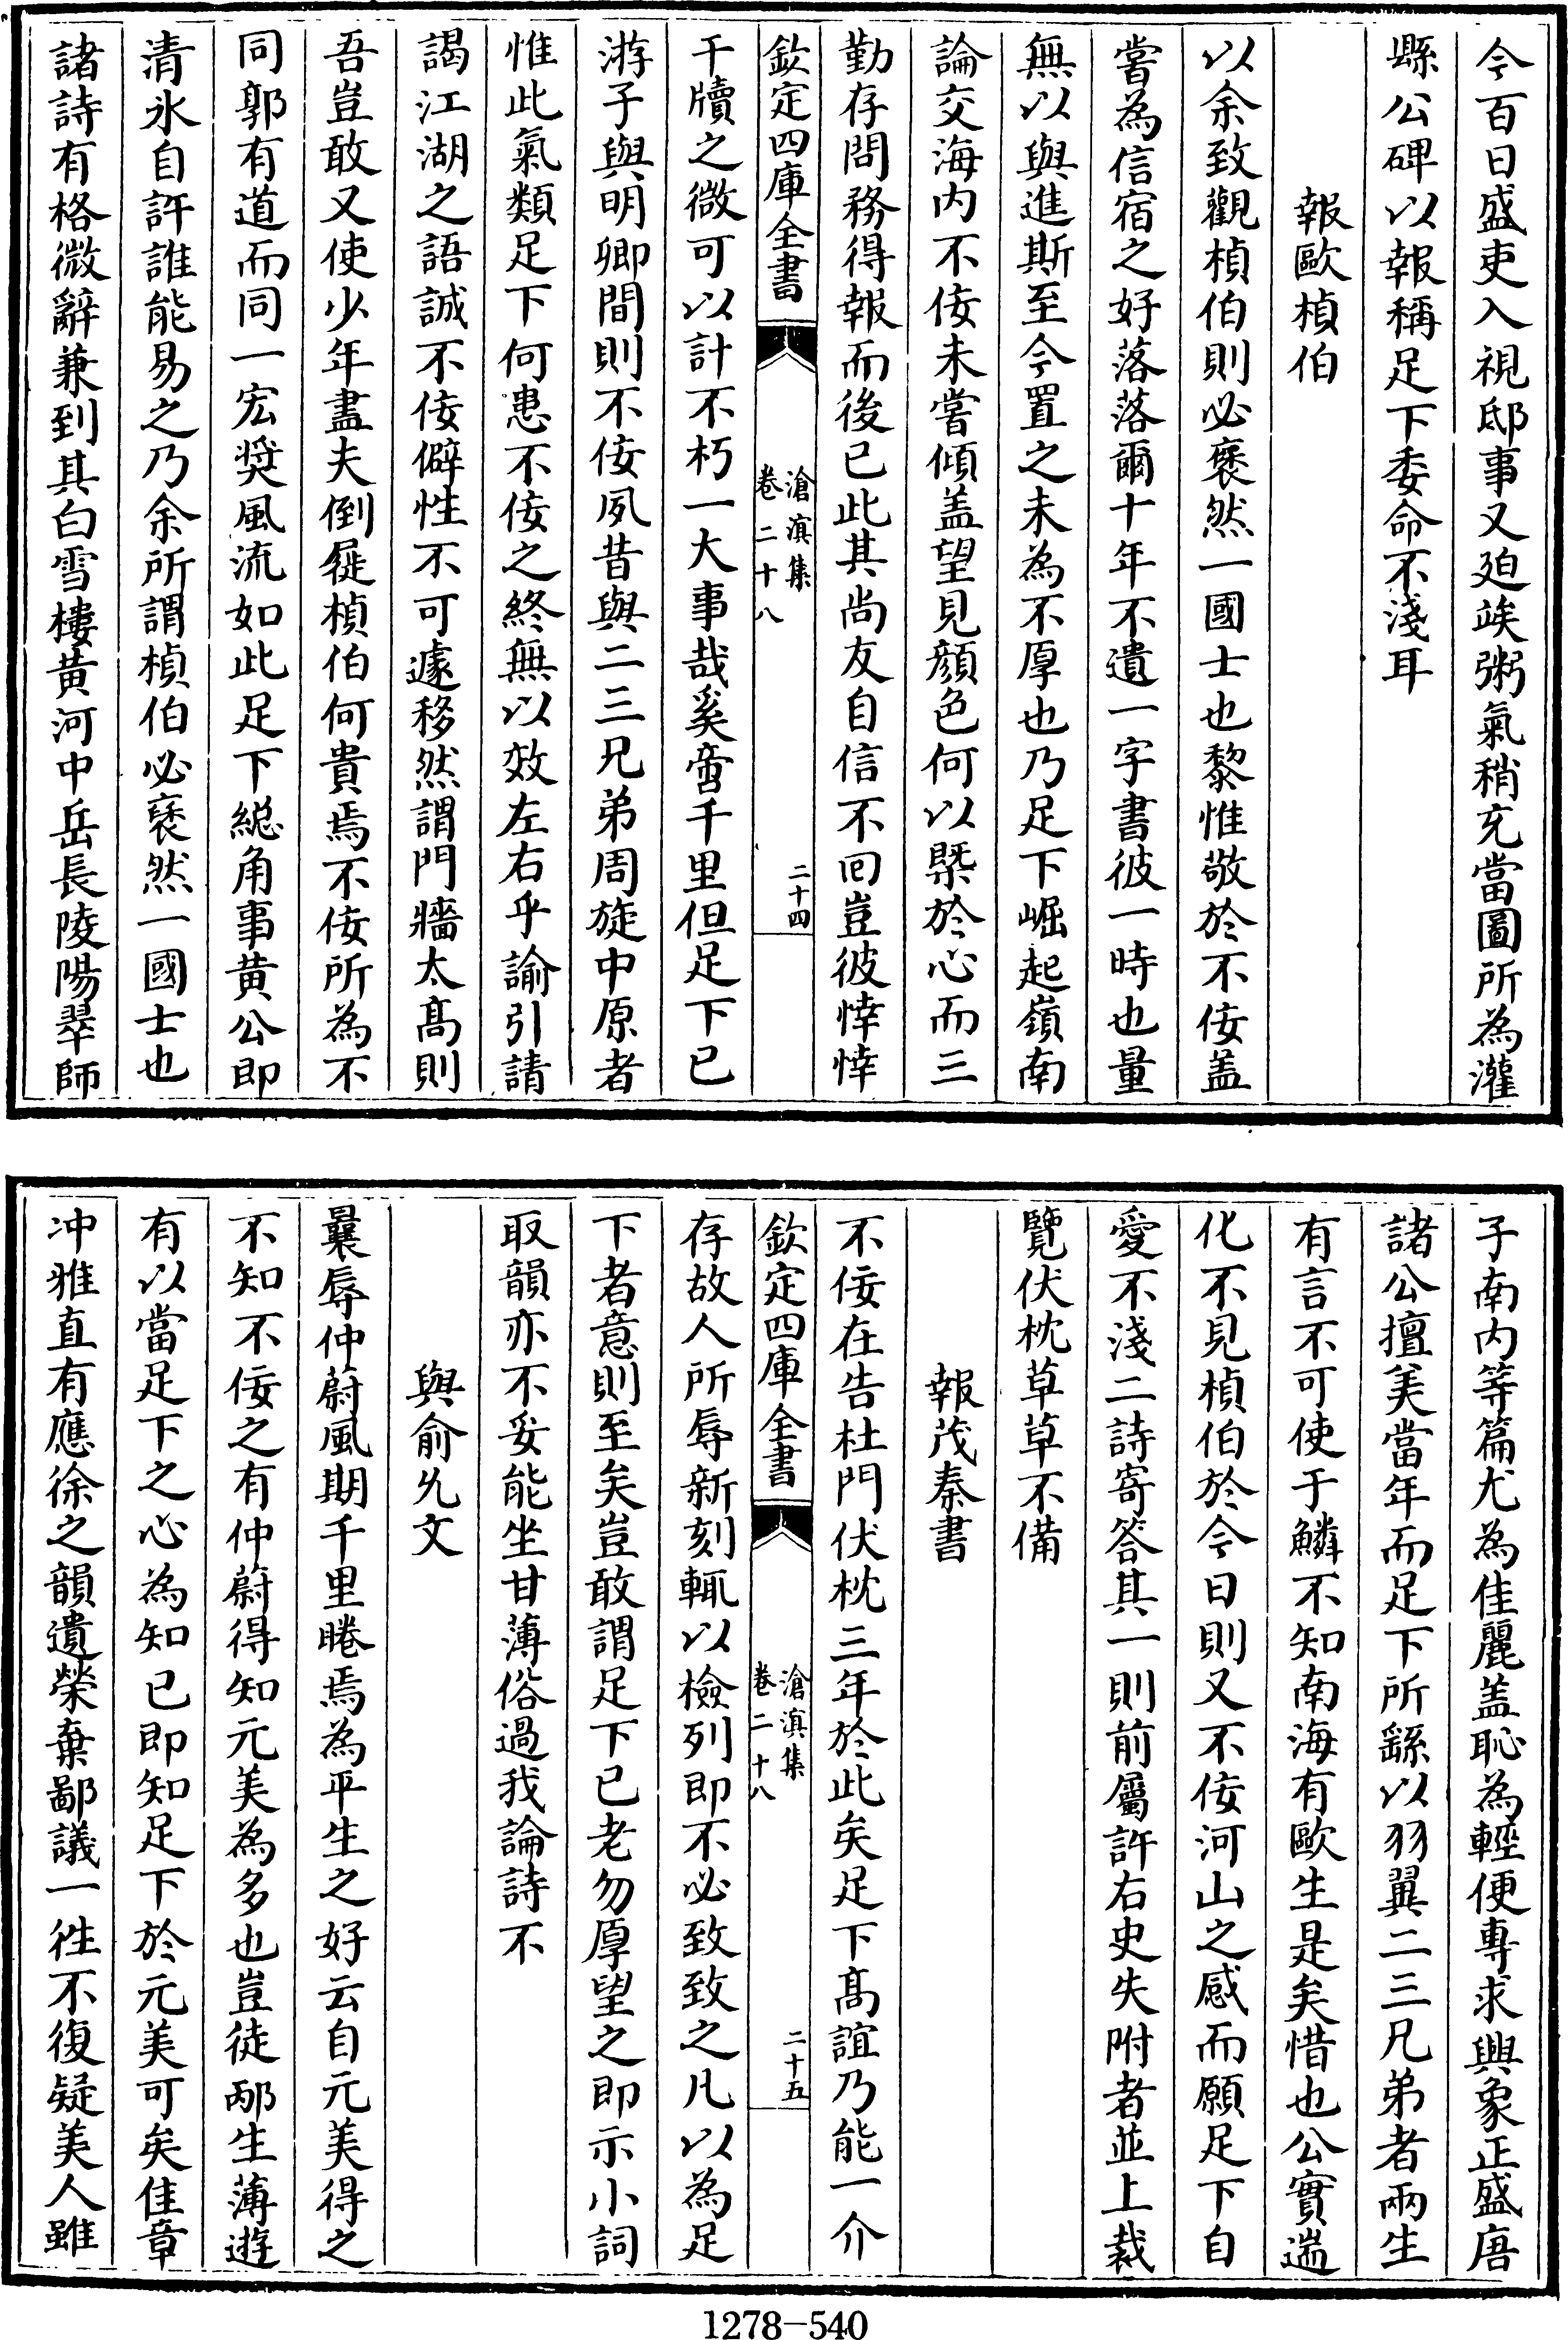 今百日盛吏入視邸事又廹竢粥氣稍充當圖所為灌
縣公碑以報稱足下委命不淺耳
報歐楨伯
以余致觀楨伯則必褎然一國士也黎惟敬於不佞盖
嘗為信宿之好落落爾十年不遺一字書彼一時也量
無以與進斯至今置之未為不厚也乃足下崛起嶺南
論交海内不佞未嘗傾盖望見顔色何以槩於心而三
勤存問務得報而後已此其尚友自信不回豈彼悻悻
欽定四庫全書
滄溟集
卷二十八
二十四
干牘之微可以計不朽一大事哉奚啻千里但足下已
游子與明卿間則不佞夙昔與二三兄弟周旋中原者
惟此氣類足下何患不佞之終無以效左右乎諭引請
謁江湖之語誠不佞僻性不可遽移然謂門牆太髙則
吾豈敢又使少年盡夫倒屣楨伯何貴焉不佞所為不
同郭有道而同一宏奬風流如此足下総角事黄公即
清氷自許誰能易之乃余所謂楨伯必褎然一國士也
諸詩有格微辭兼到其白雪樓黄河中岳長陵陽翠師
子南内等篇尤為佳麗盖恥為輕便專求興象正盛唐
諸公擅美當年而足下所繇以羽翼二三兄弟者兩生
有言不可使于鱗不知南海有歐生是矣惜也公實遄
化不見楨伯於今日則又不佞河山之感而願足下自
愛不淺二詩寄答其一則前屬許右史失附者並上裁
覽伏枕草草不備
報茂秦書
不佞在告杜門伏枕三年於此矣足下髙誼乃能一介
欽定四庫全書
滄溟集
卷二十八
二十五
存故人所辱新刻輒以檢列即不必致致之凡以為足
下者意則至矣豈敢謂足下已老勿厚望之即示小詞
取韻亦不妥能坐甘薄俗過我論詩不
與俞允文
曩辱仲蔚風期千里睠焉為平生之好云自元美得之
不知不佞之有仲蔚得知元美為多也豈徒邴生薄遊
有以當足下之心為知已即知足下於元美可矣佳章
冲雅直有應徐之韻遺榮棄鄙議一徃不復疑美人雖
1278-540